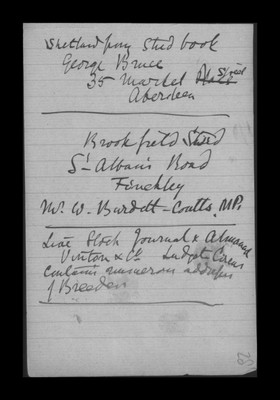 Shetland pony Stud book
George Bruce
35 Market Place Street
Aberdeen
Brookfield Stud
St Albans Road
Finchley
Mr. W. Burdett-Coutts. MP.
Live Stock Journal & Almanack
Vinton & Co Ludgate Circus
contains numerous addresses
of Breeders